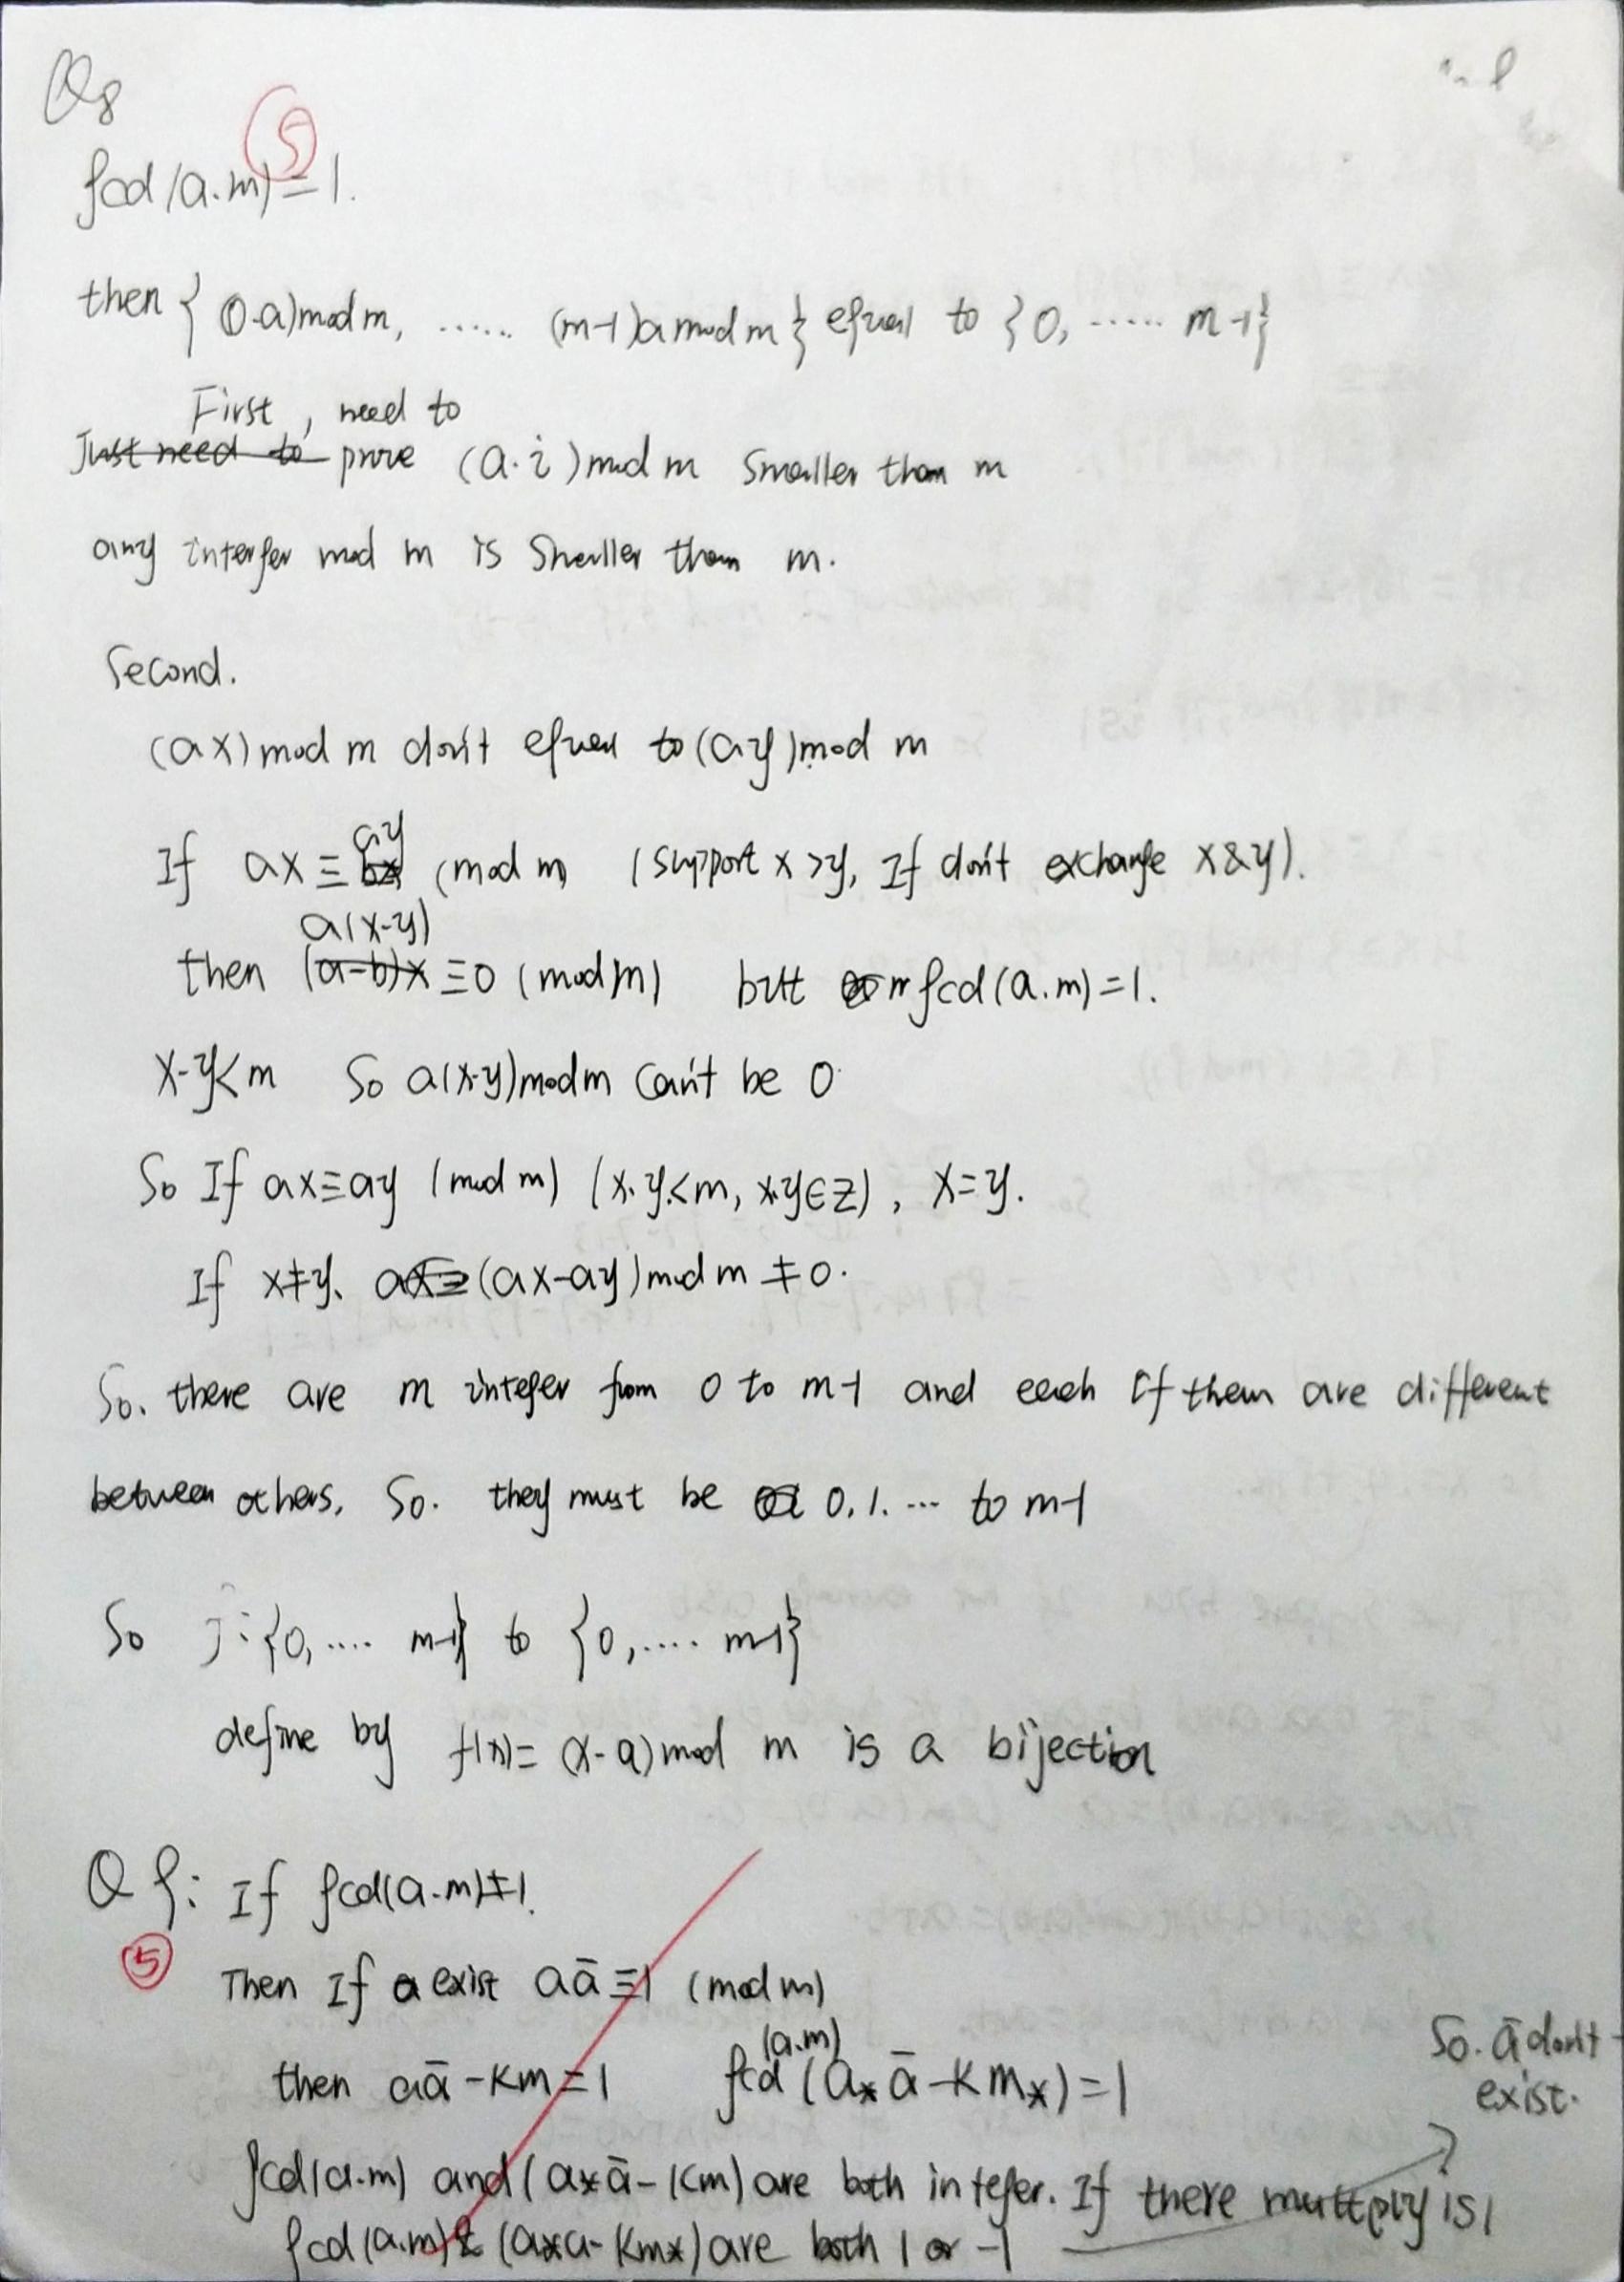 Q8
⑤
gcd(a.m)=1.
then { (0·a)mod m, ...... (m-1)a mod m } equal to {0, ...... m-1}
First, need to
Just need to prove (a·i) mod m smaller than m
any interger mod m is smaller than m.
Second.
(ax) mod m don't equal to (ay) mod m
ay
If ax ≡ bx (mod m) (support x>y, If don't exchange x&y).
a(x-y)
then (a-b)x ≡0 (mod m) but gcd(a.m)=1.
x-y<m So a(x-y) mod m can't be 0
So If ax≡ay (mod m) (x.y<m, x.y∈Z), x=y.
If x≠y. (ax-ay) mod m ≠0.
So. there are m integer from 0 to m-1 and each of them are different
between others. So. they must be 0,1. ... to m-1
So f:{0, .... m-1} to {0, .... m-1}
define by f(x)= (x·a) mod m is a bijection
Q9: If gcd(a.m)≠1.
⑤
Then If a exist aā≡1 (mod m)
then aā-km=1 gcd(a.m) (a* ā-k m*)=1
gcd(a.m) and (a*ā-km) are both integer. If there multply is 1
gcd(a.m)& (a*a-km*) are both 1 or -1
So. ā don't
exist.